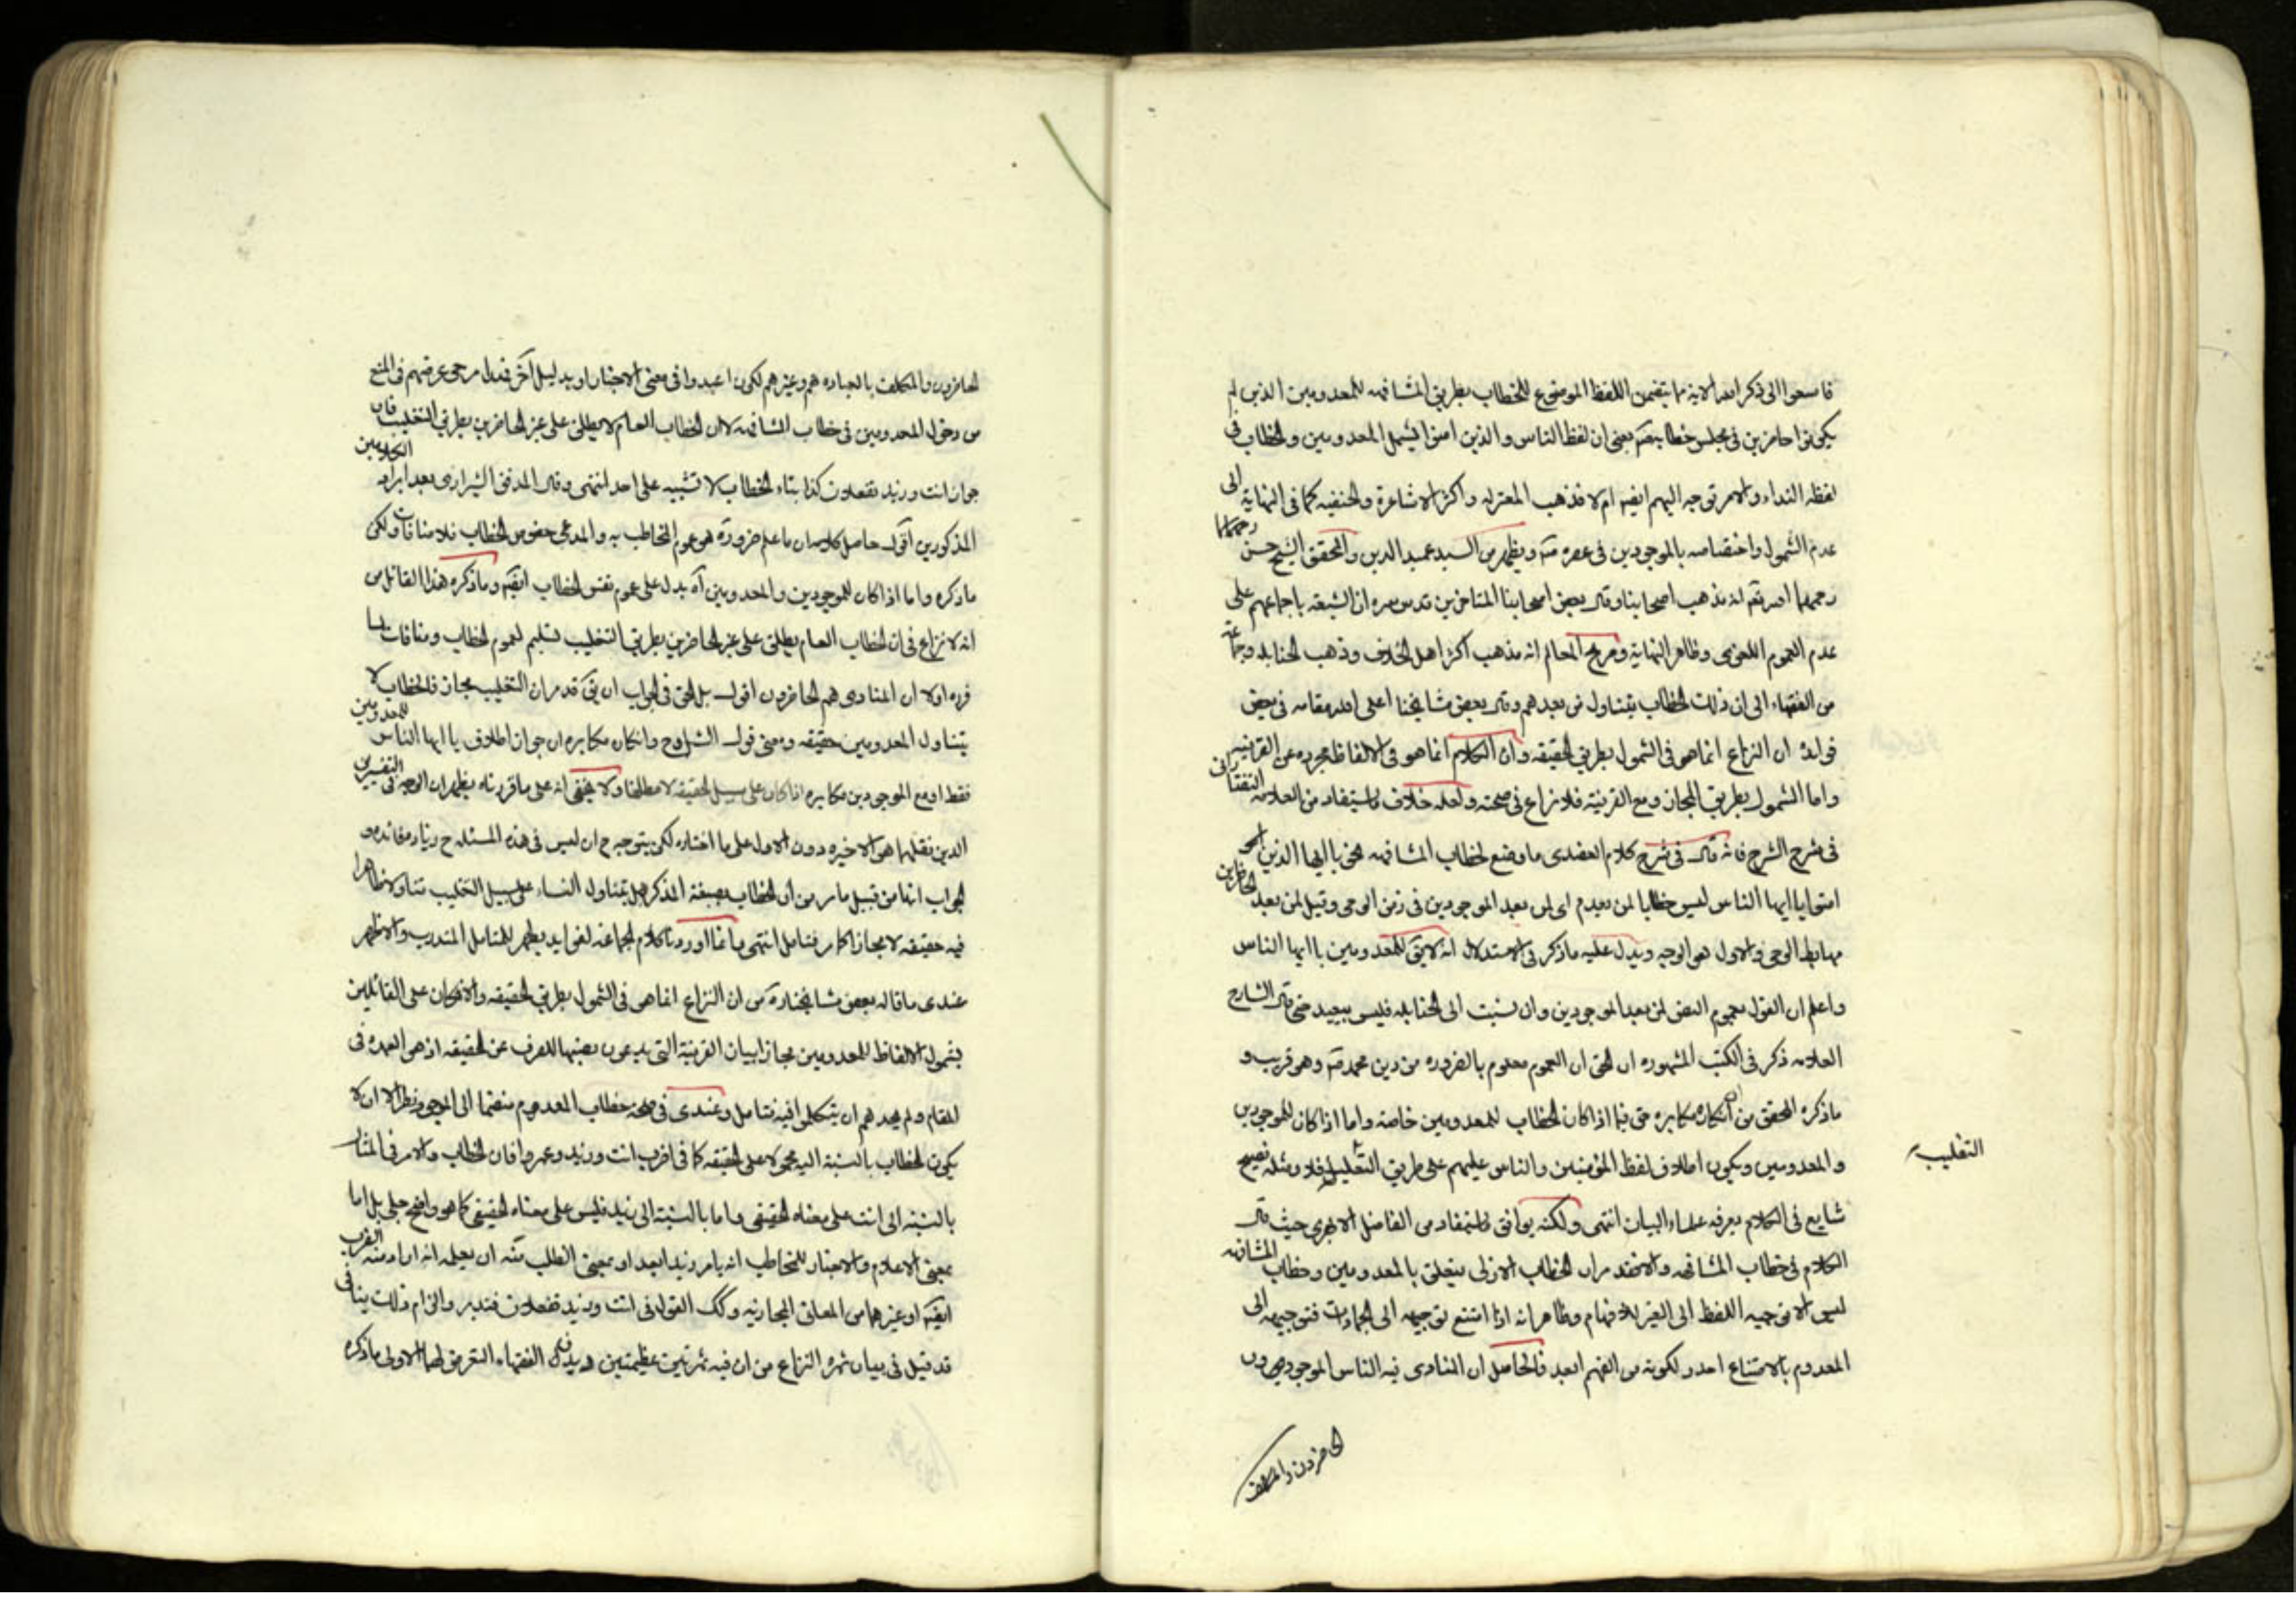 فاسعوا الى ذكر الله الاية مما يتضمن اللفظ الموضوع للخطاب بطريق المشافهه للمعدومين الذين لم
يكونوا حاضرين فى مجلس خطابهم يعنى ان لفظ الناس والذين امنوا يشمل المعدومين والخطاب فى
لفظه النداء والامر توجه اليهم ايضا ام لا فذهب المعتزله واكثر الاشاعرة والحنفيه كما فى النهاية الى
عدم الشمول واختصاصه بالموجودين فى عصره صم ويظهر من السيد عميد الدين والمحقق الشيخ حسن
رحمهما الله تع انه مذهب اصحابنا وقال بعض اصحابنا المتاخرين قدس سره ان الشيعه باجماعهم على
عدم العموم اللغوى وظاهر النهاية وصريح المعالم انه مذهب اكثر اهل الخلاف وذهب الحنابله وجماعة
من الفقهاء الى ان ذلك الخطاب يتناول من بعدهم وقال بعض مشايخنا اعلى الله مقامه فى بعض
فوائده ان النزاع انما هو فى الشمول بطريق الحقيقه وان الكلام انما هو فى الالفاظ مجرده عن القرينه
واما الشمول بطريق المجاز ومع القرينة فلا نزاع فى صحته ولعله خلاف ما يستفاد من العلامه التفتازانى
فى شرح الشرح فانه قال فى شرح كلام العضدى ما وضع لخطاب المشافهه نحو يا ايها الذين
امنوا يا ايها الناس ليس خطابا لمن بعدهم اى لمن بعد الموجودين فى زمن الوحى وقيل لمن بعد الحاضرين
مهابط الوحى والاول هو الوجه ويدل عليه ما ذكر فى الاستدلال انه لا يق للمعدومين يا ايها الناس
واعلم ان القول بعموم النص لمن بعد الموجودين وان نسبت الى الحنابله فليس ببعيد حتى قال الشارح
العلامه ذكر فى الكتب المشهوره ان الحق ان العموم معلوم بالضروره من دين محمد صم وهو قريب و
ما ذكره المحقق من ان انكاره مكابره حق فيما اذا كان الخطاب للمعدومين خاصة واما اذا كان للموجودين
والمعدومين ويكون اطلاق لفظ المؤمنين والناس عليهم على طريق التغليب فلا ومثله فصيح
التغليب
شايع فى الكلام يعرفه علماء البيان انتهى ولكنه يوافق ما يستفاد من الفاضل الابهرى حيث قال
الكلام فى خطاب المشافهه والا فقد مر ان الخطاب الازلى يتعلق بالمعدومين وخطاب المشافهه
ليس الا توجيه اللفظ الى الغير للافهام وظاهر انه اذا امتنع توجيهه الى الجمادات فتوجيهه الى
المعدوم بالامتناع اجدر لكونه من الفهم ابعد فالحاصل ان المنادى فيه الناس الموجودون
الحاضرون والمكلف
الحاضرون والمكلف بالعباده هم وغيرهم لكون اعبدوا فى معنى الاخبار او بدليل آخر فتدل مرجى غرضهم فى المنع
من دخول المعدومين فى خطاب المشافهه لا ان الخطاب العام لا يطلق على غير الحاضرين بطريق التغليب فان
جواز انت وزيد تفعلان كذا بتاء الخطاب لا تشبيه على احد انتهى وقال المدقق الشيرازى بعد ايراد الكلامين
المذكورين اقول حاصل كلامه ان ما علم ضرورة هو عموم المخاطب به والمدعى خصوص الخطاب فلا منافات ولكن
ما ذكره واما اذا كان للموجودين والمعدومين آه يدل على عموم نفس الخطاب ايضا وما ذكره هذا القائل من
انه لا نزاع فى ان الخطاب العام يطلق على غير الحاضرين بطريق التغليب تسليم لعموم الخطاب ومنافات لما
قرره اولا ان المنادى هم الحاضرون اقول بل الحق فى الجواب ان يق قد مر ان التغليب مجاز فالخطاب لا
يتناول المعدومين حقيقه ومعنى قول الشارح وانكان مكابره ان جواز اطلاق يا ايها الناس للمعدومين
فقط او مع الموجودين مكابره اذا كان على سبيل الحقيقه لا مطلقا ولا يخفى انه على ما قررناه يظهر ان الوجه فى التفسيرين
الذين نقلهما هو الاخيره دون الاول على ما اختاره لكن يتوجه ح ان ليس فى هذه المسئله ح زياد مفائده و
الجواب انها من قبيل ما مر من ان الخطاب بصيغة المذكر هل يتناول النساء على سبيل التغليب تناولا ظاهرا
فيه حقيقه لا مجازا كما مر فتامل انتهى وانما اوردنا كلام الجماعه لفوايد يظهر للمتامل المتدرب والاظهر
عندى ما قاله بعض مشايخنا ره من ان النزاع انما هى فى الشمول بطريق الحقيقه والا فكان على القائلين
بشمول الالفاظ للمعدومين مجازا بيان القرينة التى يدعون نصبها للصرف عن الحقيقه اذ هى العمده فى
المقام ولم نجدهم ان يتكلموا فيه فتامل وعندى فى صحه خطاب المعدوم منضما الى الموجود نظر الا ان لا
يكون الخطاب بالنسبة اليه محمولا على الحقيقه كما فى اضرب انت وزيد وعمرو فان الخطاب والامر فى المثال
بالنسبه الى انت على معناه الحقيقى واما بالنسبة الى زيد فليس على معناه الحقيقى كما هو واضح جلى بل اما
بمعنى الاعلام والاخبار للمخاطب انه يامر زيدا بعد او بمعنى الطلب منه ان يعلمه انه اراد منه الضرب
ايضا او غيرهما من المعانى المجازيه وكك القول فى انت وزيد تفعلان فتدبر والزام ذلك ينافى
قد قيل فى بيان ثمره النزاع من ان فيه ثمرتين عظيمتين الفقهاء التعرض لهما الاولى ما ذكره